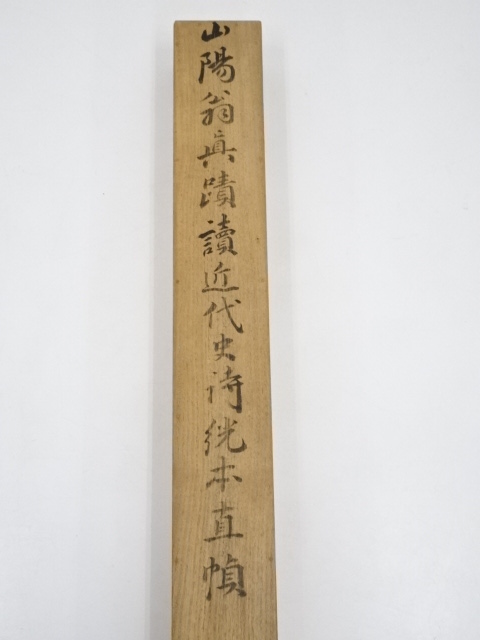 山陽翁眞蹟讀近代史詩絖本直幀